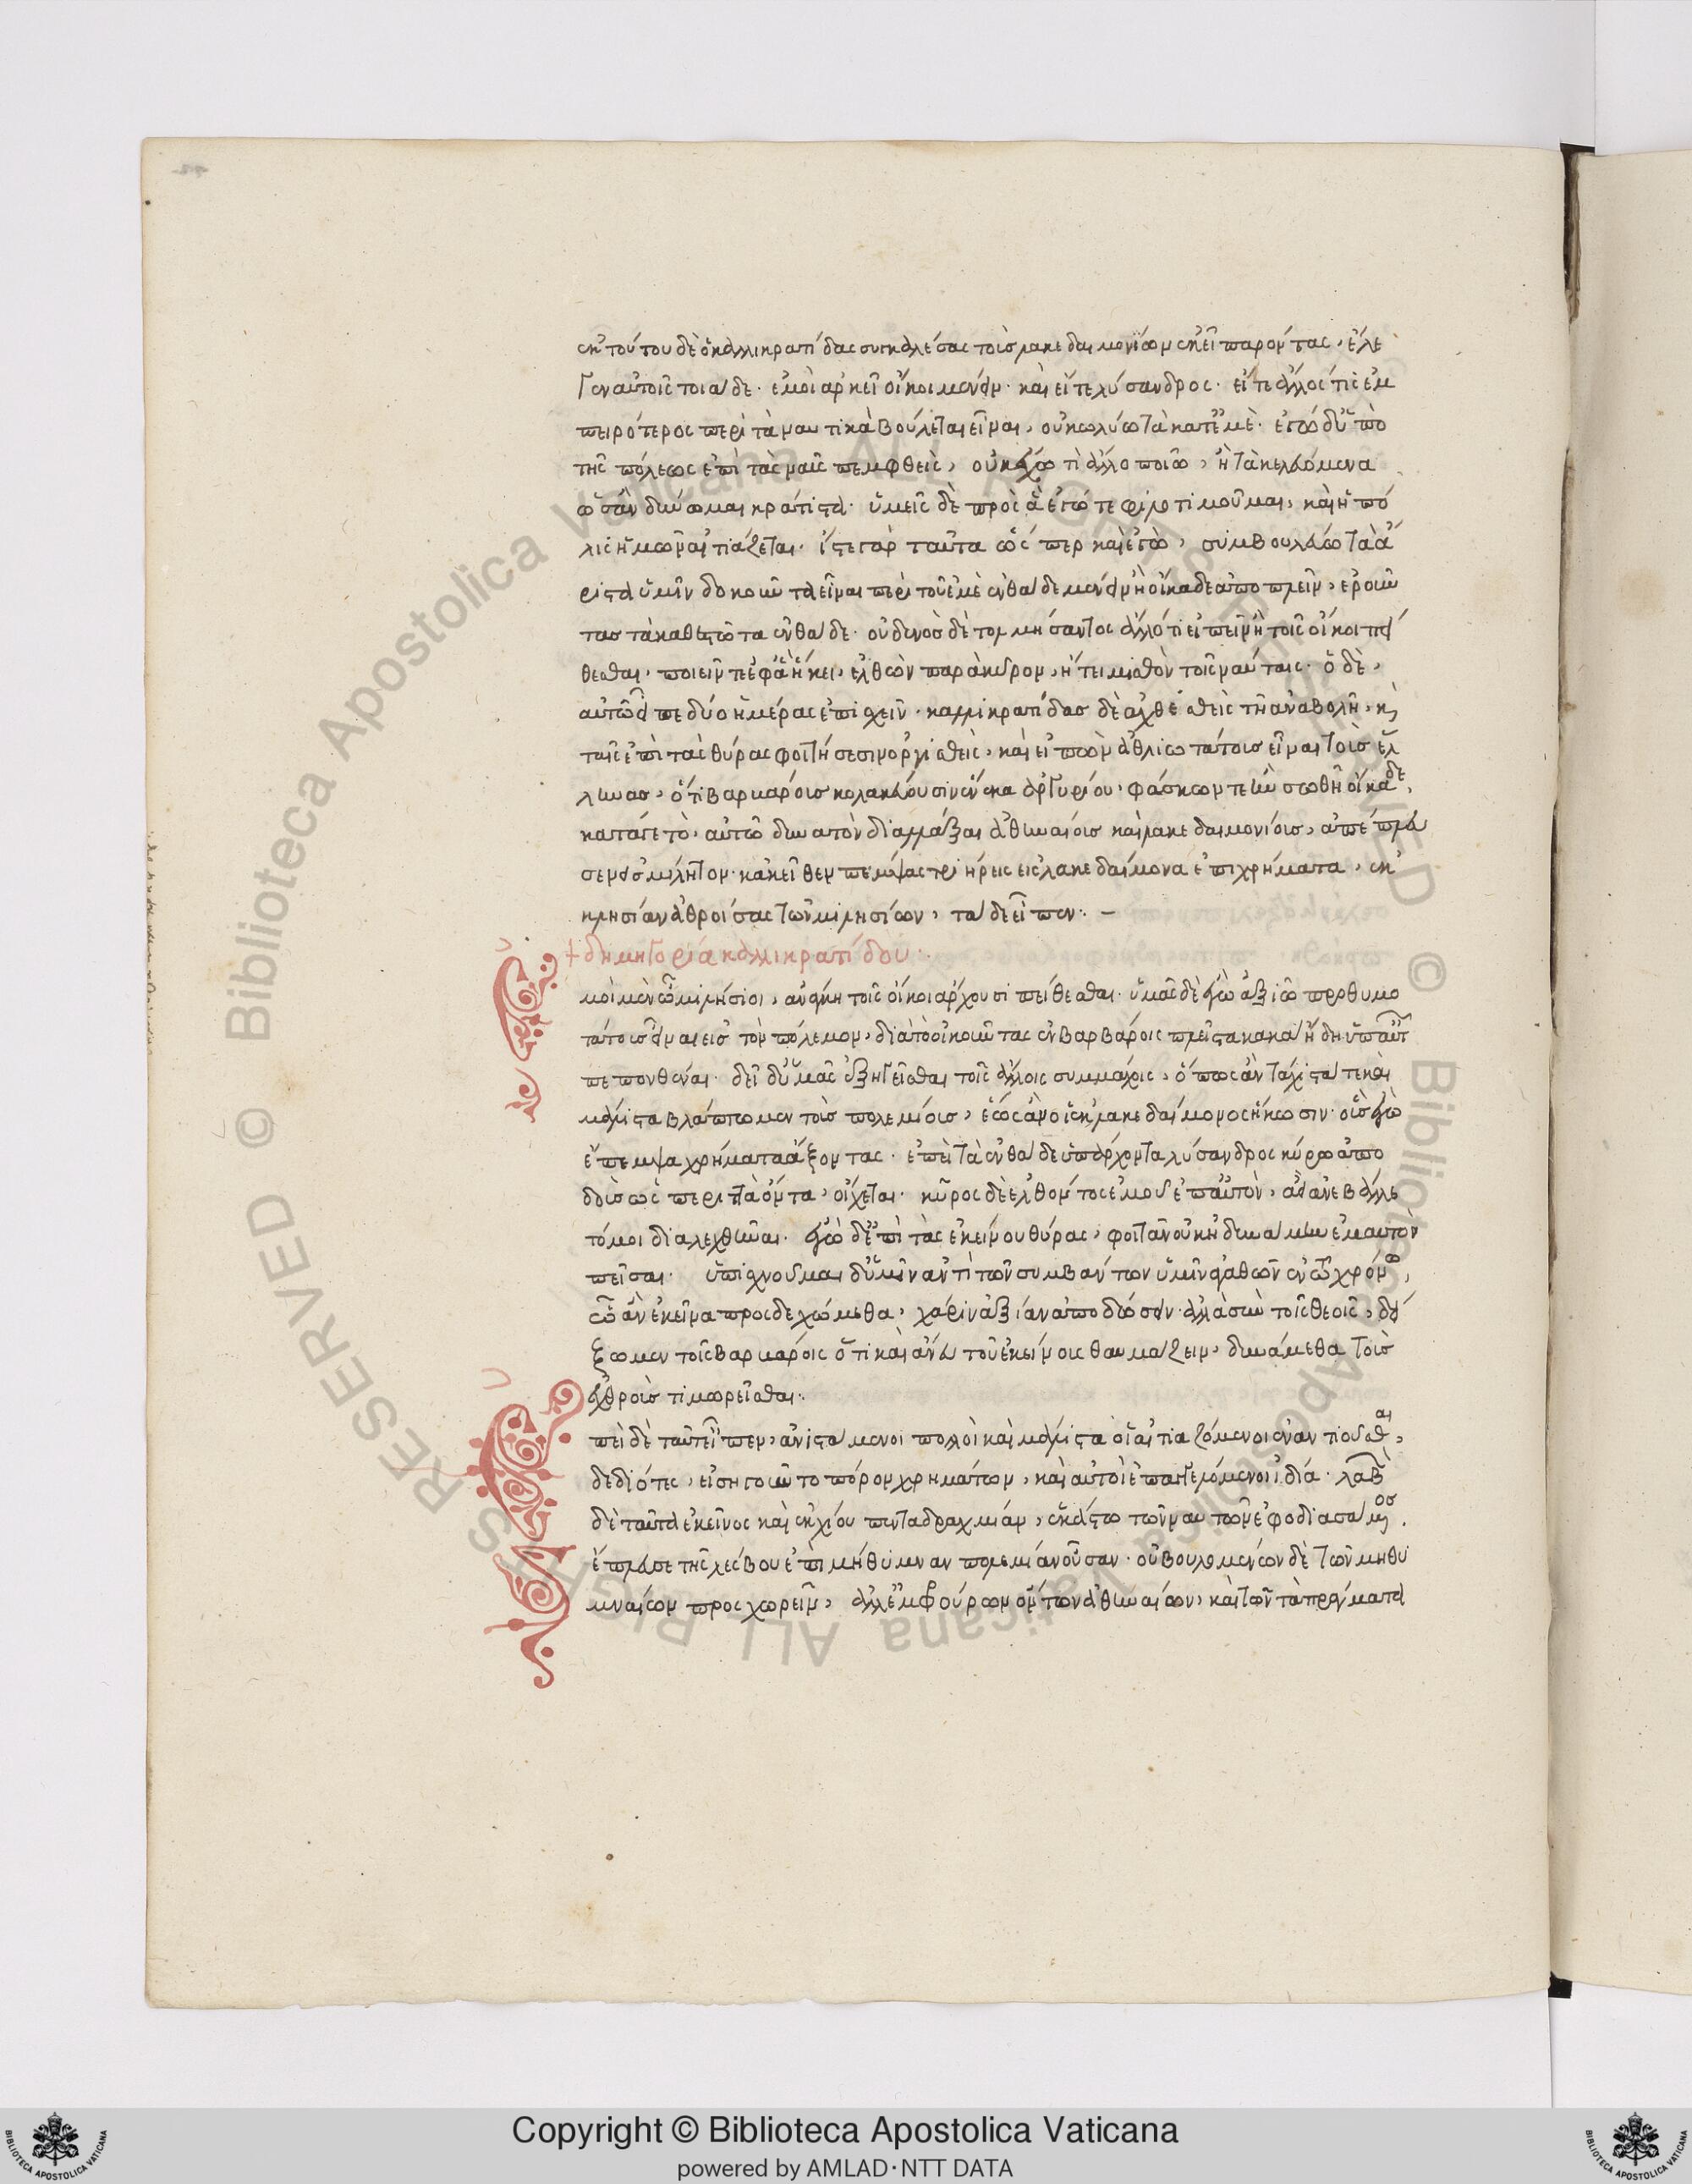 ἐκ τούτου δὲ ὁ καλλικρατίδας συγκαλέσας τοὺς λακεδαιμονίων ἐκεῖ παρόντας, ἔλε
γεν αὐτοῖς τοιάδε. ἐμοὶ ἀρκεῖ οἴκοι μένειν. καὶ εἴτε λύσανδρος. εἴτε ἄλλός τις ἐμ
πειρότερος περὶ τὰ ναυτικὰ βούλεται εἶναι, οὐ κωλύω τὰ κατ' ἐμὲ. ἐγὼ δ' ὑπὸ
τῆς πόλεως ἐπὶ τὰς ναῦς πεμφθεὶς, οὐκ ἔχω τί ἄλλο ποιῶ, ἢ τὰ κελευόμενα
ὡς ἂν δύνωμαι κράτιστα. ὑμεῖς δὲ πρὸς ἃ ἐγώ τε φιλοτιμοῦμαι, καὶ ἡ πό
λις ἡμῶν αἰτιάζεται. ἴστε γὰρ ταῦτα ὥσπερ καὶ ἐγὼ, συμβουλεύω τὰ ἄ
ριστα ὑμῖν δοκοῦντα εἶναι περὶ τοῦ ἐμὲ ἐνθάδε μένειν ἢ οἴκαδε ἀποπλεῖν, ἐροῦν
τας τὰ καθεστῶτα ἐνθάδε. οὐδενὸς δὲ τολμήσαντος ἄλλό τι εἰπεῖν ἢ τοῖς οἴκοι πεί
θεσθαι, ποιεῖν τε ἐφ' ἃ ἥκει, ἐλθὼν παρὰ κῦρον, ᾔτει μισθὸν τοῖς ναύταις. ὁ δὲ,
αὐτῶ εἶπε δύο ἡμέρας ἐπισχεῖν. καλλικρατίδας δὲ ἀχθεσθεὶς τῆ ἀναβολῆ, κ
ταῖς ἐπὶ τὰς θύρας φοιτήσεσιν ὀργισθεὶς, καὶ εἰπὼν ἀθλιωτάτους εἶναι τοὺς ἕλ
ληνας, ὅτι βαρβάρους κολακεύουσιν ἕνεκα ἀργυρίου, φάσκων τε ἢν σωθῆ οἴκαδε,
κατά γε τὸ, αὐτῶ δυνατὸν διαλλάξαι ἀθηναίους καὶ λακεδαιμονίους, ἀπέπλευ
σεν εἰς μίλητον. κἀκεῖθεν πέμψας τριήρεις εἰς λακεδαίμονα ἐπὶ χρήματα, ἐκ
κλησίαν ἀθροίσας τῶν μιλησίων, τάδε εἶπεν. –
+ δημηγορία καλλικρατίδου.
Ἐμοὶ μὲν ὦ μιλήσιοι, ἀνάγκη τοῖς οἴκοι ἄρχουσι πείθεσθαι. ὑμᾶς δὲ ἐγὼ ἀξιῶ προθυμο
τάτους εἶναι εἰς τὸν πόλεμον, διὰ τὸ οἰκοῦντας ἐν βαρβάροις πλεῖστα κακὰ ἤδη ὑπ' αὐτ
πεπονθέναι. δεῖ δ' ὑμᾶς ἐξηγεῖσθαι τοῖς ἄλλοις συμμάχοις, ὅπως ἂν τάχιστά τε καὶ
μάλιστα βλάπτωμεν τοὺς πολεμίους, ἕως ἂν οἱ ἐκ λακεδαίμονος ἥκωσιν. οὓς ἐγὼ
ἔπεμψα χρήματα ἄξοντας. ἐπεὶ τὰ ἐνθάδε ὑπάρχοντα λύσανδρος κύρω ἀπο
δοὺς ὡς περιττὰ ὄντα, οἴχεται. κῦρος δὲ ἐλθόντος ἐμοῦ ἐπ' αὐτὸν, ἀεὶ ἀνεβάλλε
τό μοι διαλεχθῆναι. ἐγὼ δ' ἐπὶ τὰς ἐκείνου θύρας, φοιτᾶν οὐκ ἠδυνάμην ἐμαυτὸν
πεῖσαι. ὑπισχνοῦμαι δ' ὑμῖν ἀντὶ τῶν συμβάντων ὑμῖν ἀγαθῶν ἐν ὧ χρόνω,
ὧ ἂν ἐκεῖνα προσδεχώμεθα, χάριν ἀξίαν ἀποδώσειν. ἀλλὰ σὺν τοῖς θεοῖς, δεί
ξωμεν τοῖς βαρβάροις ὅτι καὶ ἄνευ τοῦ ἐκείνους θαυμάζειν, δυνάμεθα τοὺς
ἐχθροὺς τιμωρεῖσθαι.
Ἐπεὶ δὲ ταῦτ' εἶπεν, ἀνιστάμενοι πολλοὶ καὶ μάλιστα οἱ αἰτιαζόμενοι ἐναντιοῦσθαι,
δεδιότες, εἰσηγοῦντο πόρον χρημάτων, καὶ αὐτοὶ ἐπαγγελλόμενοι ἰδία. λαβ
δὲ ταῦτα ἐκεῖνος καὶ ἐκ χίου πενταδραχμίαν, ἑκάστω τῶν ναυτῶν ἐφοδιασάμενος.
ἔπλευσε τῆς λέσβου ἐπὶ μήθυμναν πολεμίαν οὖσαν. οὐ βουλομένων δὲ τῶν μηθυ
μναίων προσχωρεῖν, ἀλλ' ἐμφρούρων ὄντων ἀθηναίων, καὶ τῶν τὰ πράγματα
Copyright © Biblioteca Apostolica Vaticana
powered by AMLAD·NTT DATA